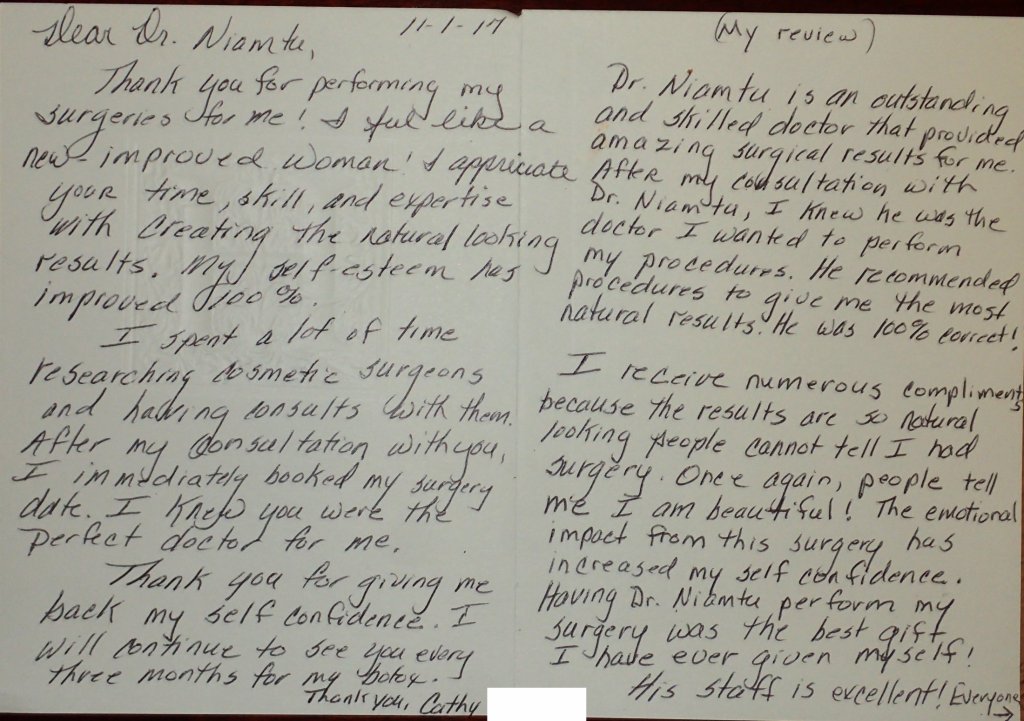 11-1-17
Dear Dr. Niamtu,
Thank you for performing my
surgeries for me! I feel like a
new-improved woman! I appreciate
your time, skill, and expertise
with creating the natural looking
results. My self-esteem has
improved 100%.
I spent a lot of time
researching cosmetic surgeons
and having consults with them.
After my consultation with you,
I immediately booked my surgery
date. I knew you were the
perfect doctor for me.
Thank you for giving me
back my self confidence. I
will continue to see you every
three months for my botox.
Thank you, Cathy
(My review)
Dr. Niamtu is an outstanding
and skilled doctor that provided
amazing surgical results for me.
After my consultation with
Dr. Niamtu, I knew he was the
doctor I wanted to perform
my procedures. He recommended
procedures to give me the most
natural results. He was 100% correct!
I receive numerous compliments
because the results are so natural
looking people cannot tell I had
surgery. Once again, people tell
me I am beautiful! The emotional
impact from this surgery has
increased my self confidence.
Having Dr. Niamtu perform my
surgery was the best gift
I have ever given myself!
His staff is excellent! Everyone
→